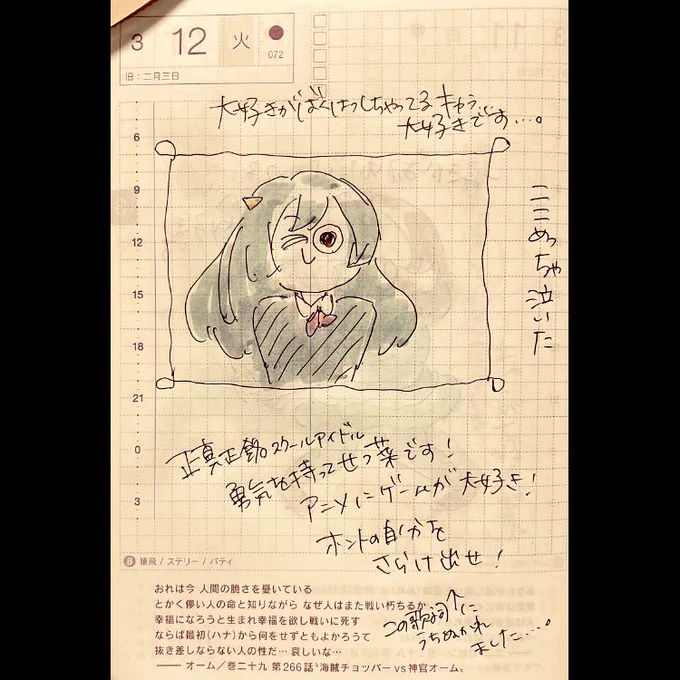 3 12 火
072
旧：二月三日
大好きがばくはつしちゃってるキャラ、
大好きです…。
6
9
12
15
18
21
0
3
ここめっちゃ泣いた
正真正銘スクールアイドル
勇気を持ってせつ菜です！
アニメにゲームが大好き！
ホントの自分を
さらけ出せ！
この歌詞↑に
うちぬかれ
ました…。
B 猿飛 / ステリー / パティ
おれは今 人間の脆さを憂いている
とかく儚い人の命と知りながら なぜ人はまた戦い朽ちるか
幸福になろうと生まれ幸福を欲し戦いに死す
ならば最初（ハナ）から何をせずともよかろうて
抜き差しならない人の性だ… 哀しいな…
—— オーム／巻二十九 第266話“海賊チョッパー vs 神官オーム”